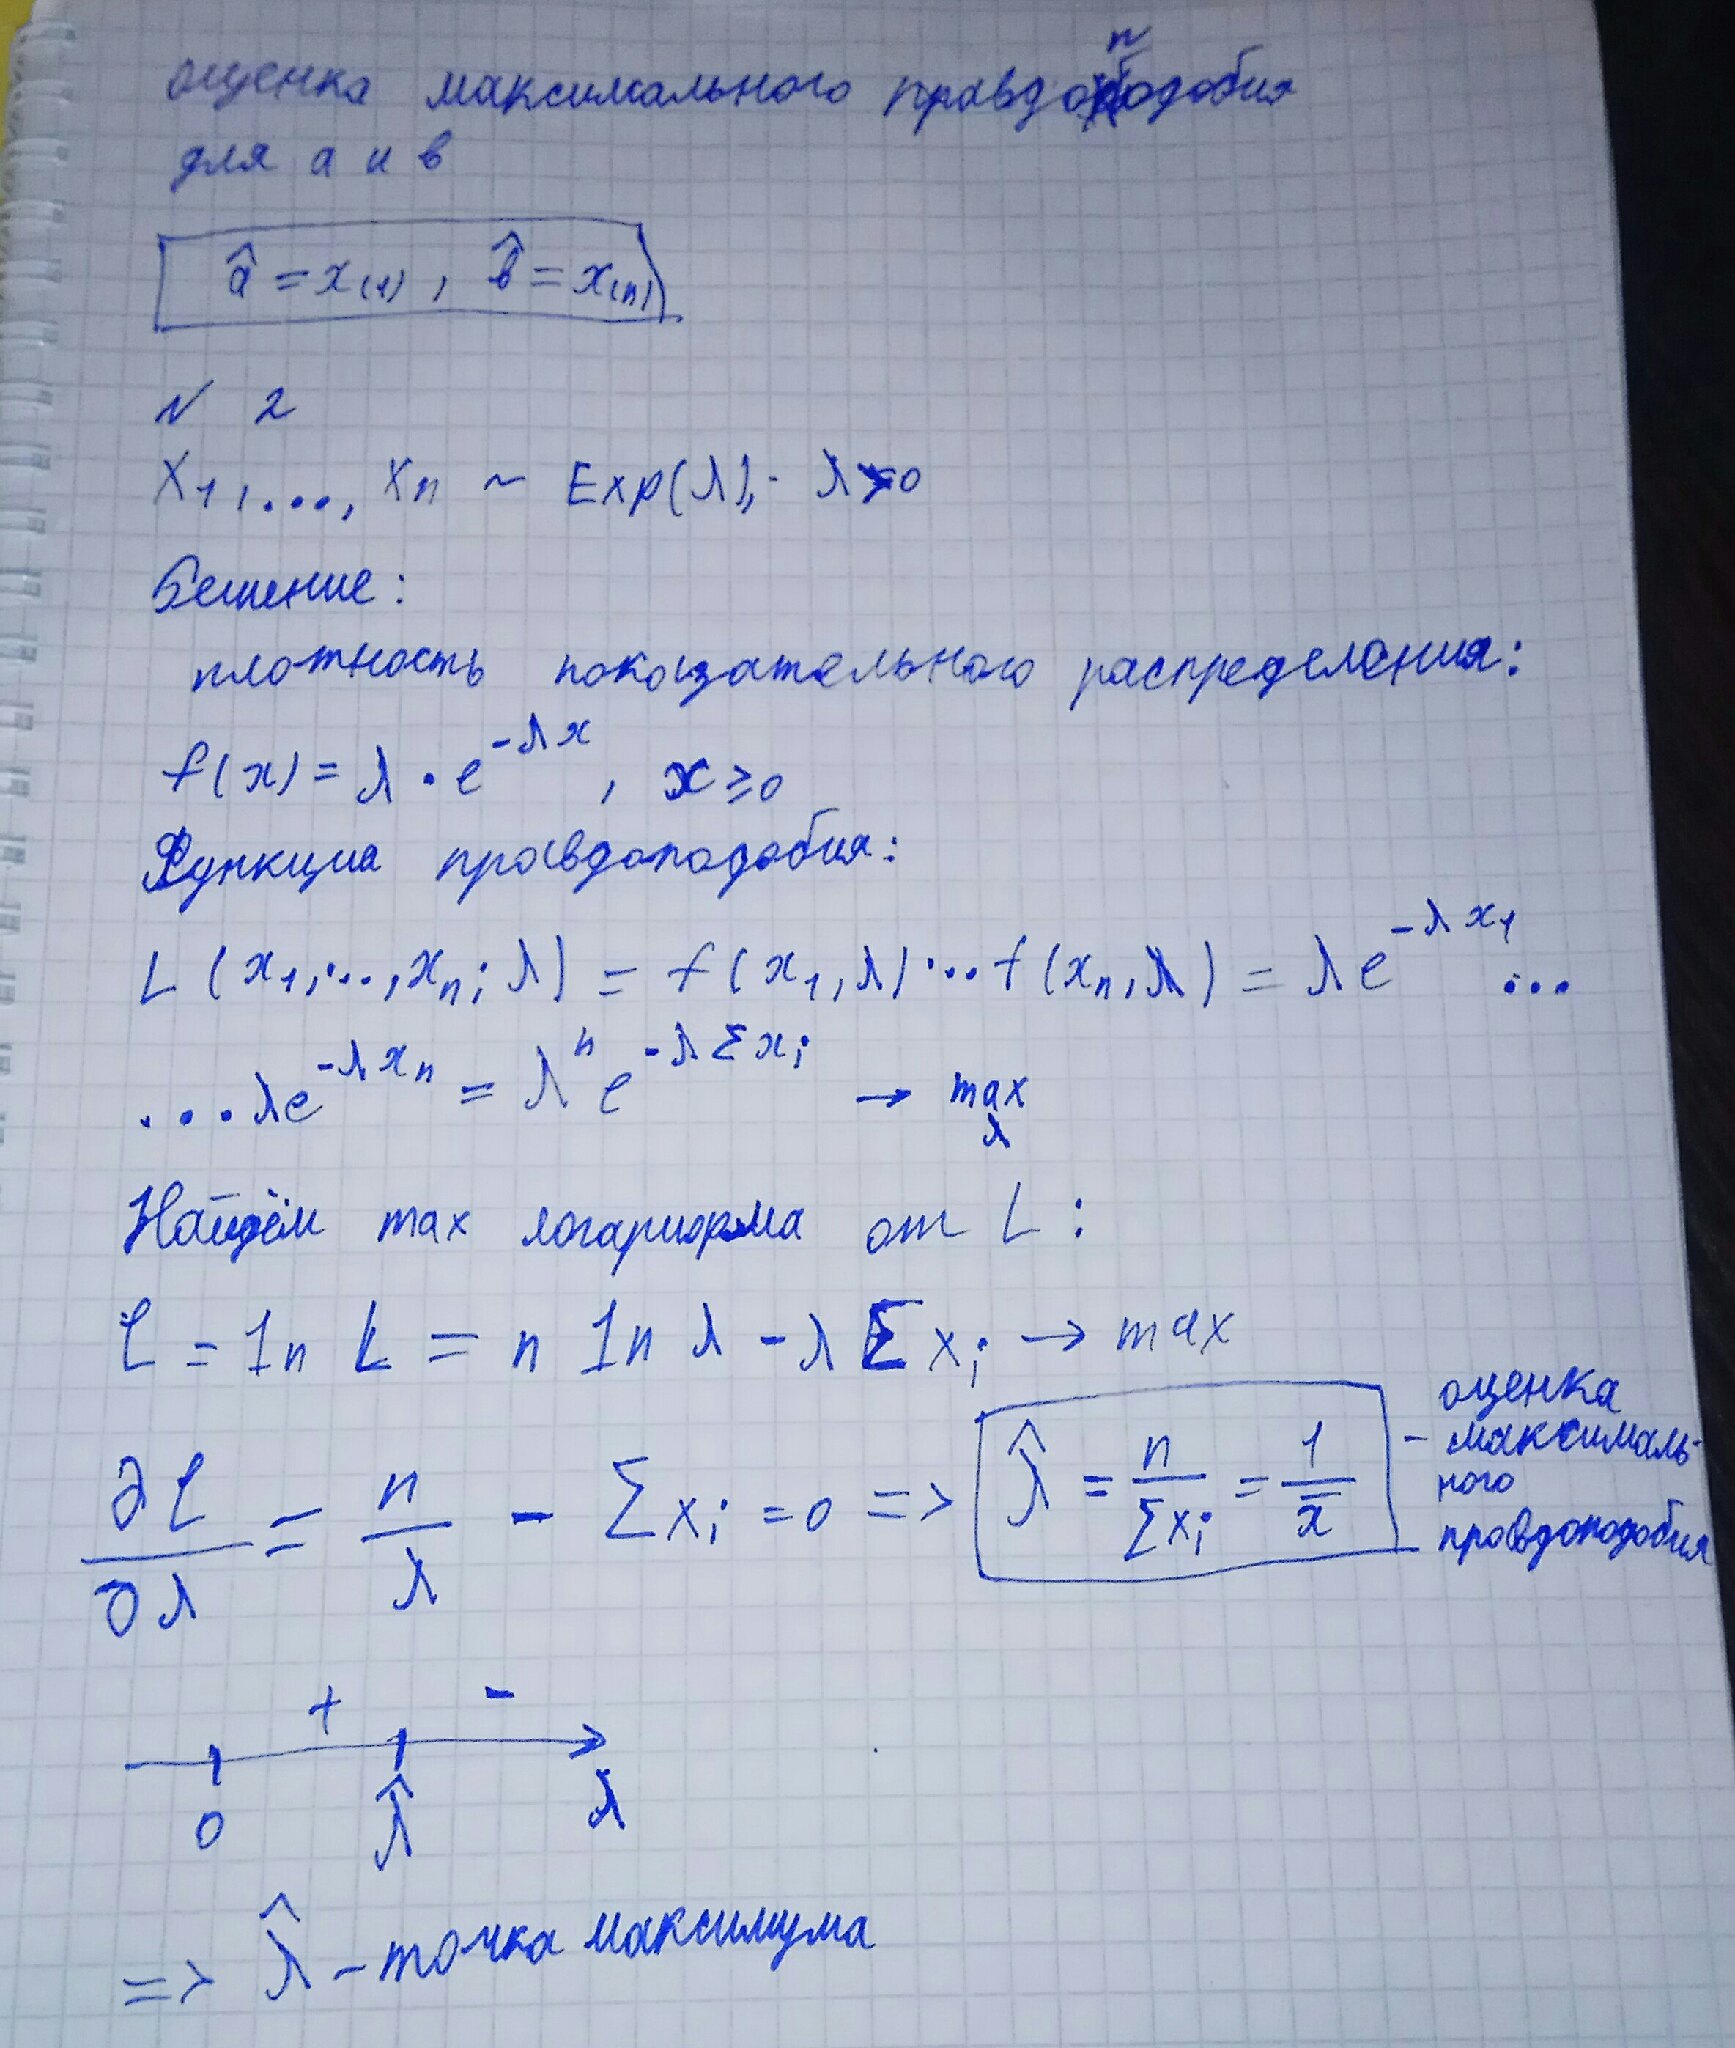 оценка максимального правдоподобия
для а и в
â = x₍₁₎, b̂ = x₍ₙ₎
N 2
X₁,..., Xₙ ~ Exp(λ), λ>0
Решение:
плотность показательного распределения:
f(x) = λ · e^(-λx), x ≥ 0
Функция правдоподобия:
L (x₁,...,xₙ; λ) = f(x₁,λ)...f(xₙ,λ) = λe^(-λx₁) ...
...λe^(-λxₙ) = λⁿ e^(-λΣxᵢ) → max λ
Найдём max логарифма от L :
ℓ = ln L = n ln λ - λ Σ xᵢ → max
∂ℓ/∂λ = n/λ - Σxᵢ = 0 => λ̂ = n/Σxᵢ = 1/x̄ - оценка максималь-
ного
правдоподобия
+ -
0 λ̂ λ
=> λ̂ - точка максимума